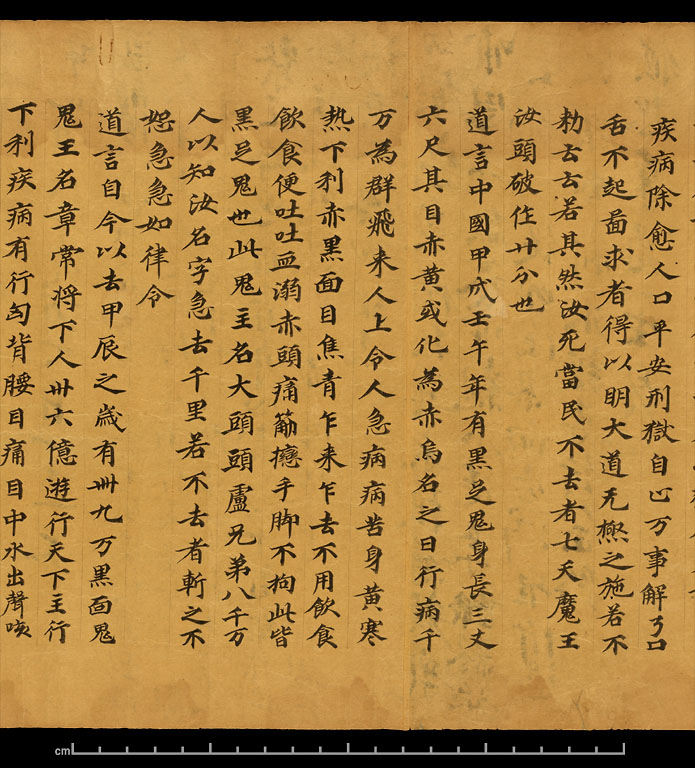 疾病除愈人口平安刑獄自亡万事解了口
舌不起啚求者得以明大道无極之施若不
勑去去若其然汝死當民不去者七天魔王
汝頭破作廿分也
道言中國甲戌壬午年有黑足鬼身長三丈
六尺其目赤黄或化為赤烏名之日行病千
万為群飛来人上令人急病病苦身黄寒
熱下利赤黑面目焦青乍来乍去不用飲食
飲食便吐吐血溺赤頭痛筋㿈手脚不拘此皆
黑足鬼也此鬼主名大頭頭盧兄弟八千万
人以知汝名字急去千里若不去者斬之不
恕急急如律令
道言自今以去甲辰之歲有卌九万黒面鬼
鬼王名章常将下人卅六億遊行天下主行
下利疾病有行匈背腰目痛目中水出聲咳
cm